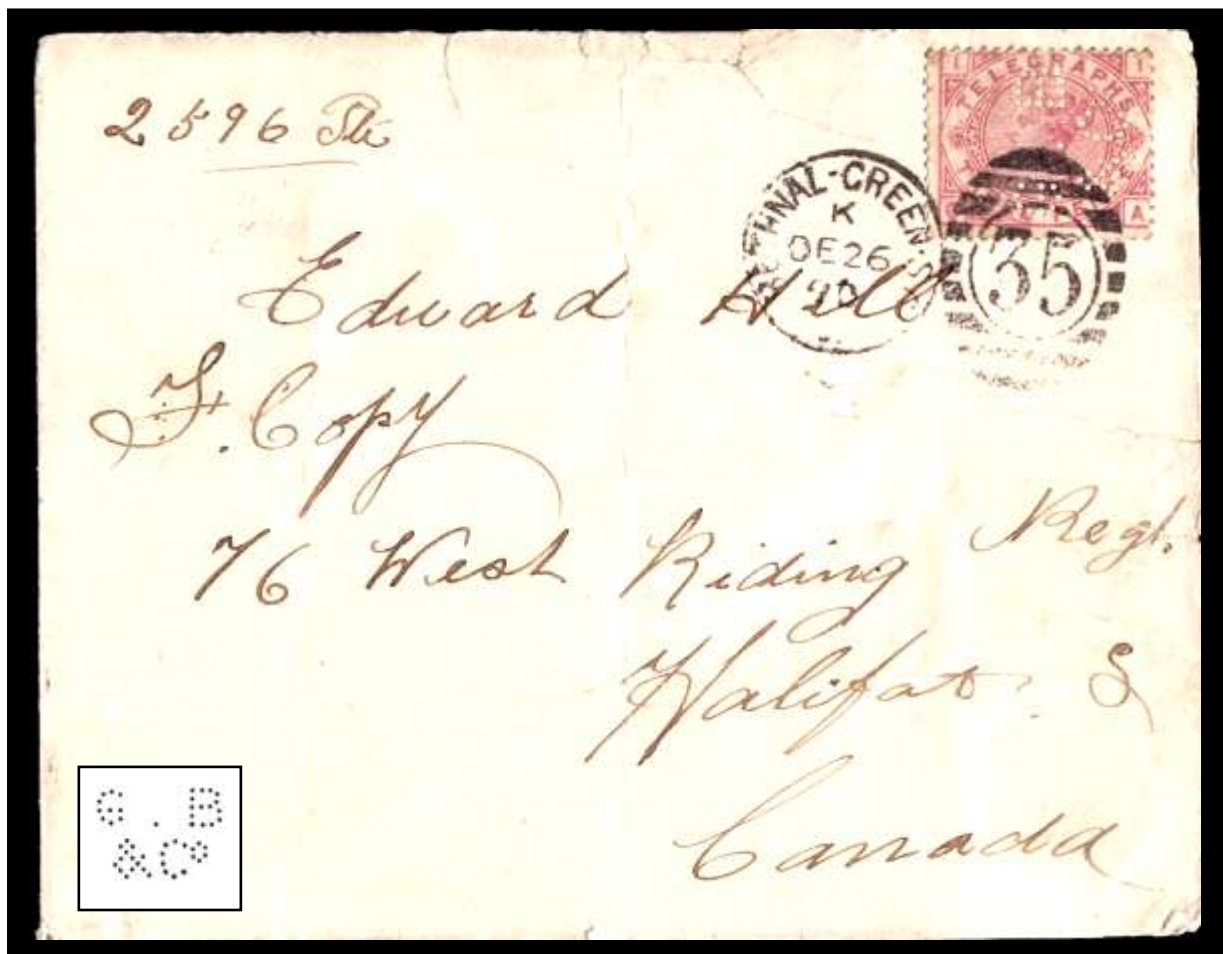 2596 Pte
TELEGRAPHS
I I
A
BETHNAL-GREEN.S.O
K
DE 26
90
35
Edward Hill
F. Copy
76 West Riding Regt.
Halifax S
Canada
G . B
&Co